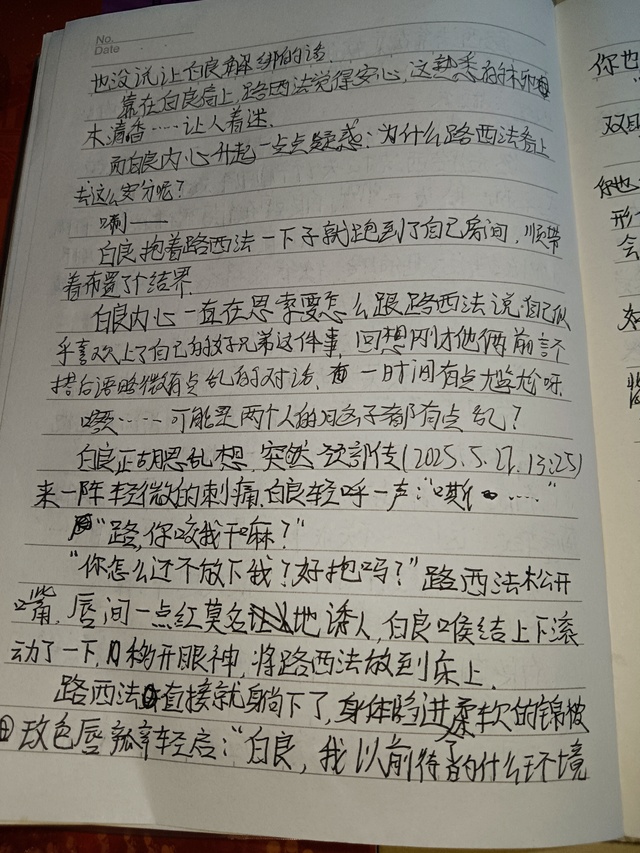 No.
Date
也没说让白良解绑的话.
靠在白良肩上,路西法觉得安心,这熟悉的木
木清香……让人着迷.
而白良内心升起一点点疑惑:为什么路西法
去这么安分呢?
唰——
白良抱着路西法一下子就跑到了自己房间,顺带
着布置了个结界.
白良内心一直在思索要怎么跟路西法说自己似
乎喜欢上了自己的好兄弟这件事,回想刚才他俩前言不
搭后语略微有点乱的对话,一时间有点尴尬呀.
嘿……可能是两个人的脑子都有点乱?
白良正胡思乱想,突然颈部传(2025.5.27.13:25)
来一阵轻微的刺痛.白良轻呼一声:“嘶……”
“路,你咬我干嘛?”
“你怎么还不放下我?好抱吗?”路西法松开
嘴,唇间一点红莫名地诱人,白良喉结上下滚
动了一下,移开眼神,将路西法放到床上.
路西法直接就躺下了,身体陷进柔软的锦被
玫色唇瓣轻启:“白良,我以前待的什么环境
你也
双
你也
形
会